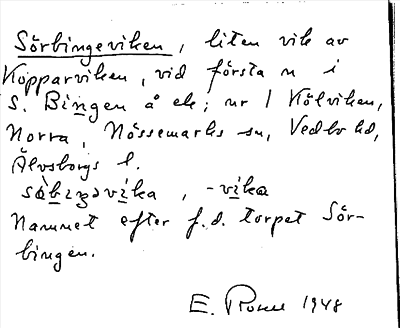 Sörbingeviken, liten vik av
Kopparviken, vid första n i
S. Bingen å ek; nr 1 Kölviken,
Norra, Nössemarks sn, Vedbo hd,
Älvsborgs l.
-vika
Namnet efter f.d. torpet Sör-
bingen.
E. 1948